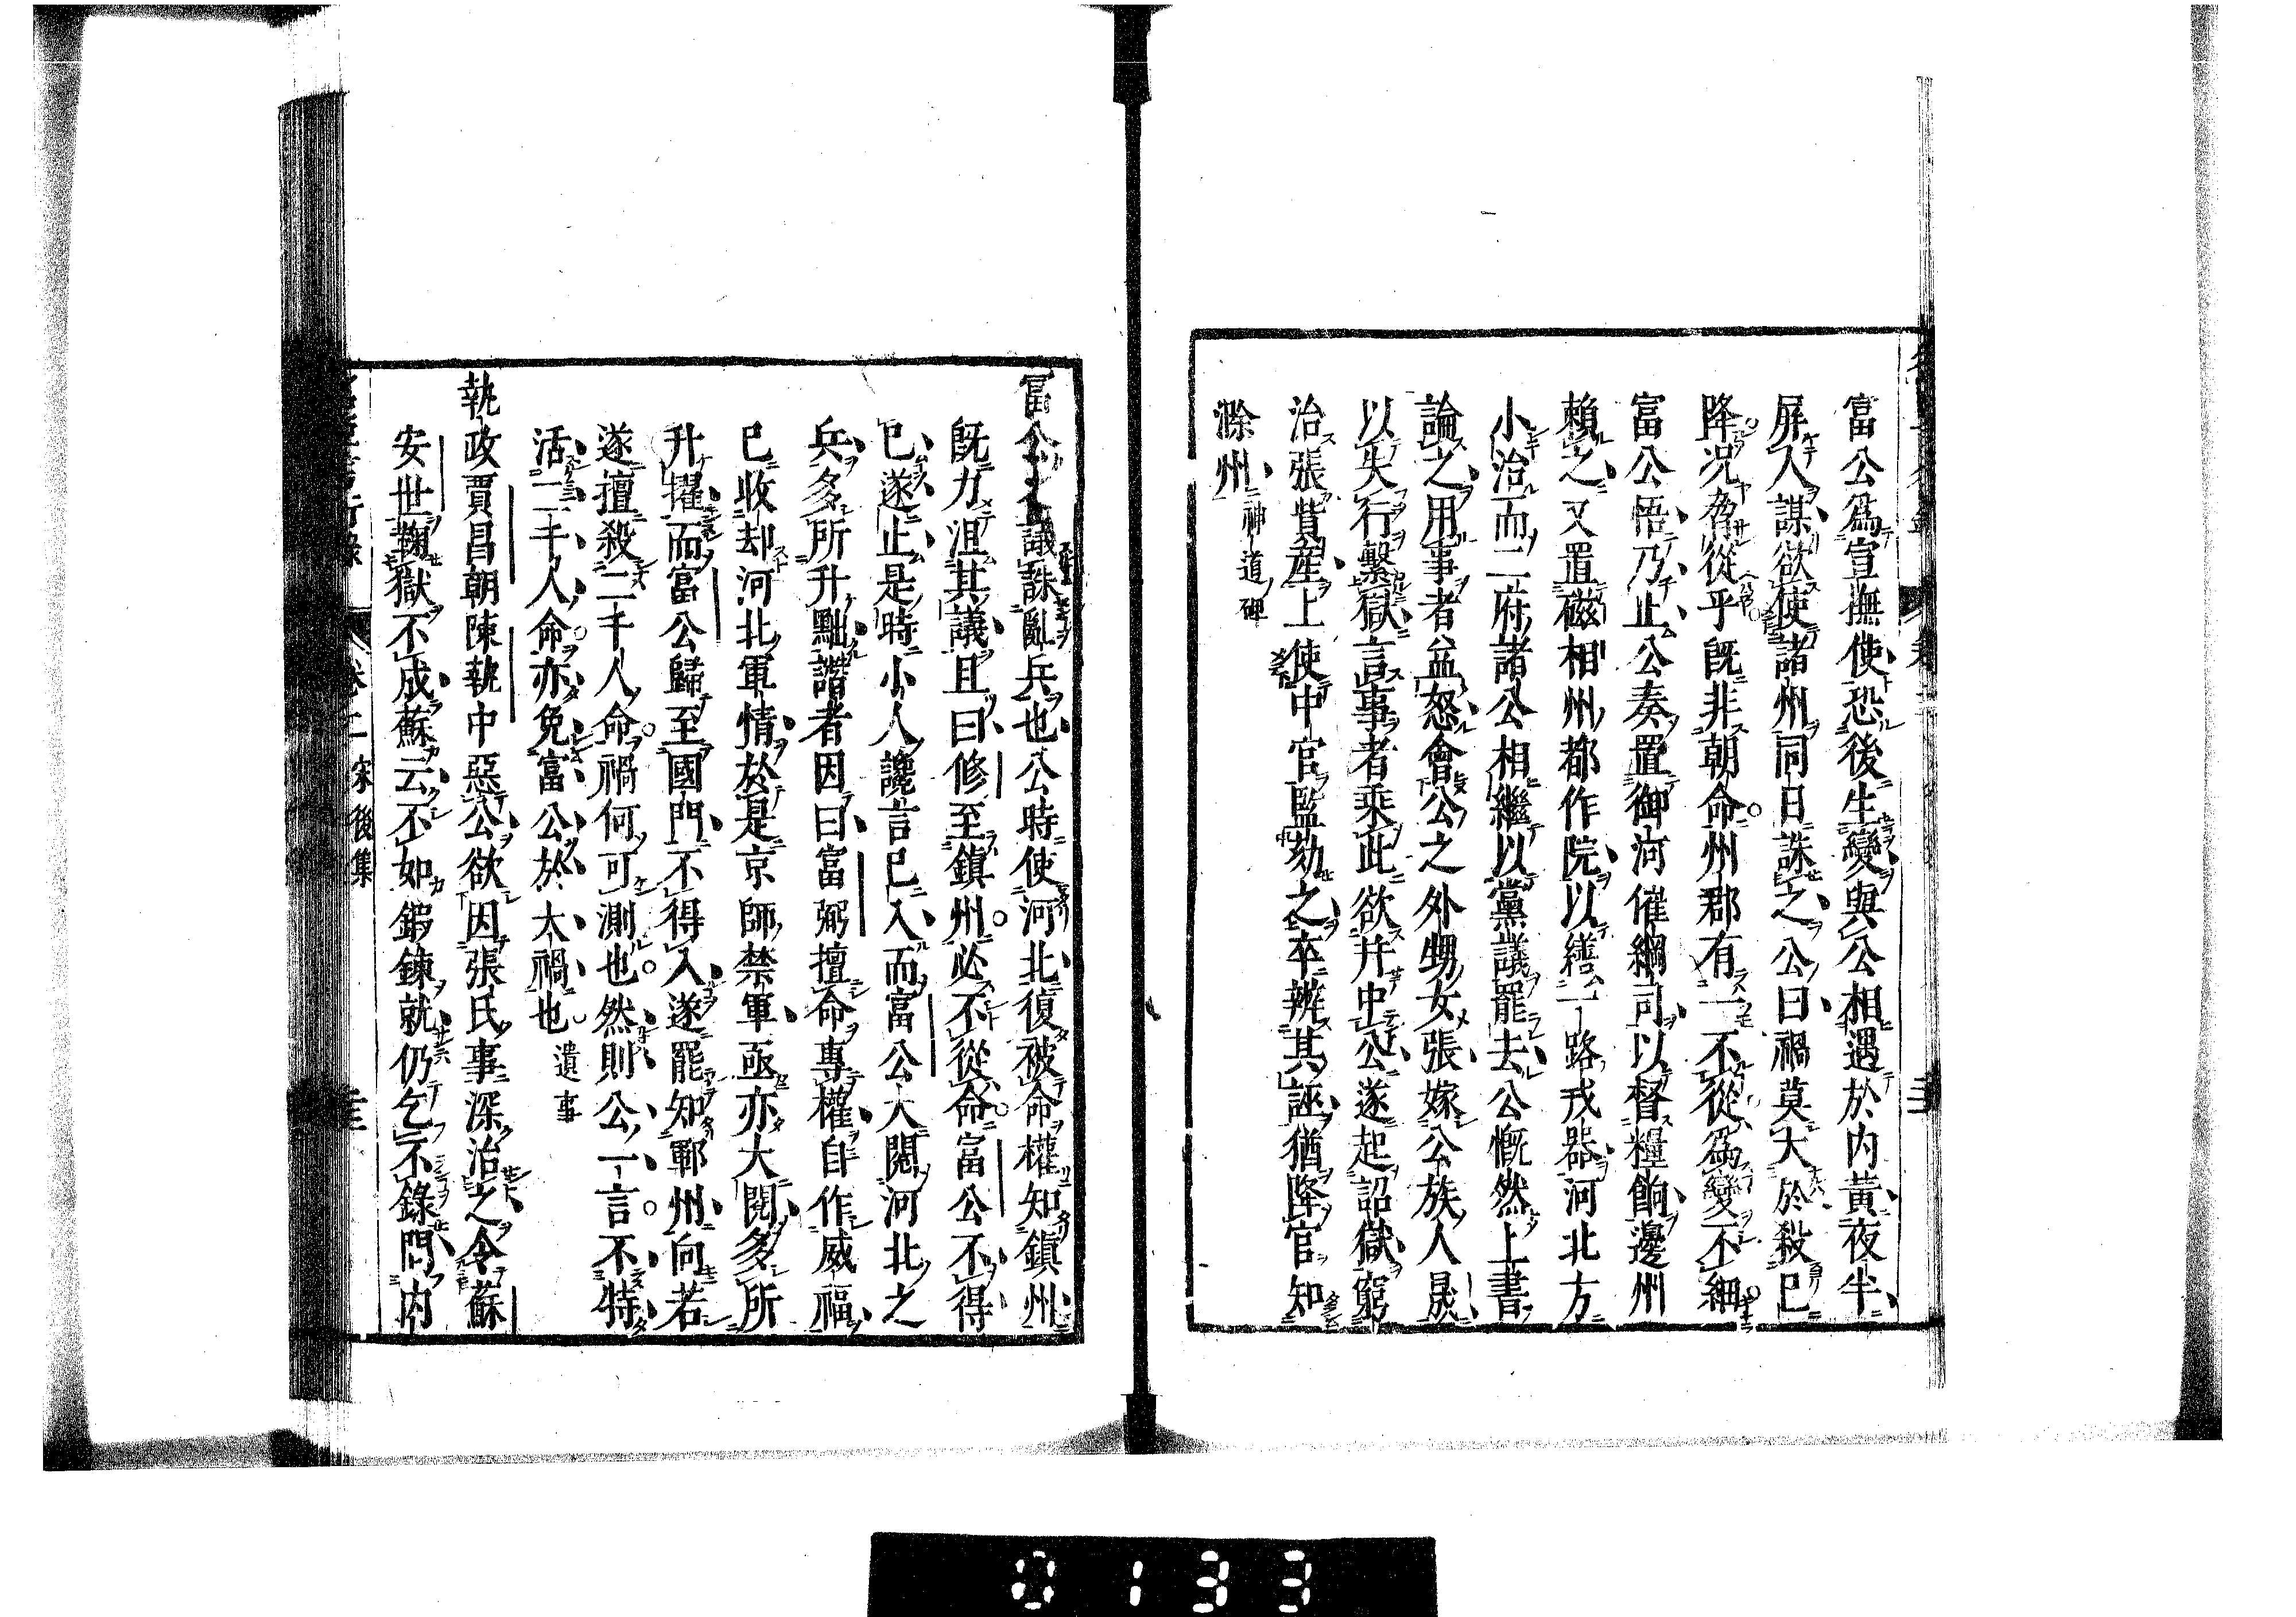 富公爲宣撫使恐後生變與公相遇於内黃夜半
屏人謀欲使諸州同日誅之公曰禍莫大於殺已
降况脅從乎既非朝命州郡有一不從爲變不細
富公悟乃止公奏置御河催綱司以督糧餉邊州
賴之又置磁相州都作院以繕一路戎器河北方
小治而二府諸公相繼以黨議罷去公慨然上書
論之用事者益怒會公之外甥女張嫁公族人晟
以失行繫獄言事者乘此欲并中公遂起詔獄窮
治張貲產上使中官監劾之卒辨其誣猶降官知
滁州神道碑
富公之議誅亂兵也公時使河北復被命權知鎮州
既力沮其議且曰修至鎮州必不從命富公不得
已遂止是時小人讒言已入而富公大閱河北之
兵多所升黜譖者因曰富弼擅命專權自作威福
已收却河北軍情於是京師禁軍亟亦大閱多所
升擢而富公歸至國門不得入遂罷知鄆州向若
遂擅殺二千人命禍何可測也然則公一言不特
活二千人命亦免富公於大禍也遺事
執政賈昌朝陳執中惡公欲因張氏事深治之令蘇
安世鞠獄不成蘇云不如鍛鍊就仍乞不錄問内
卷二宋後集
0133